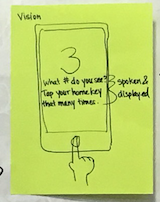 Vision
3
What # do you see?
Tap your home key
that many times.
spoken &
displayed